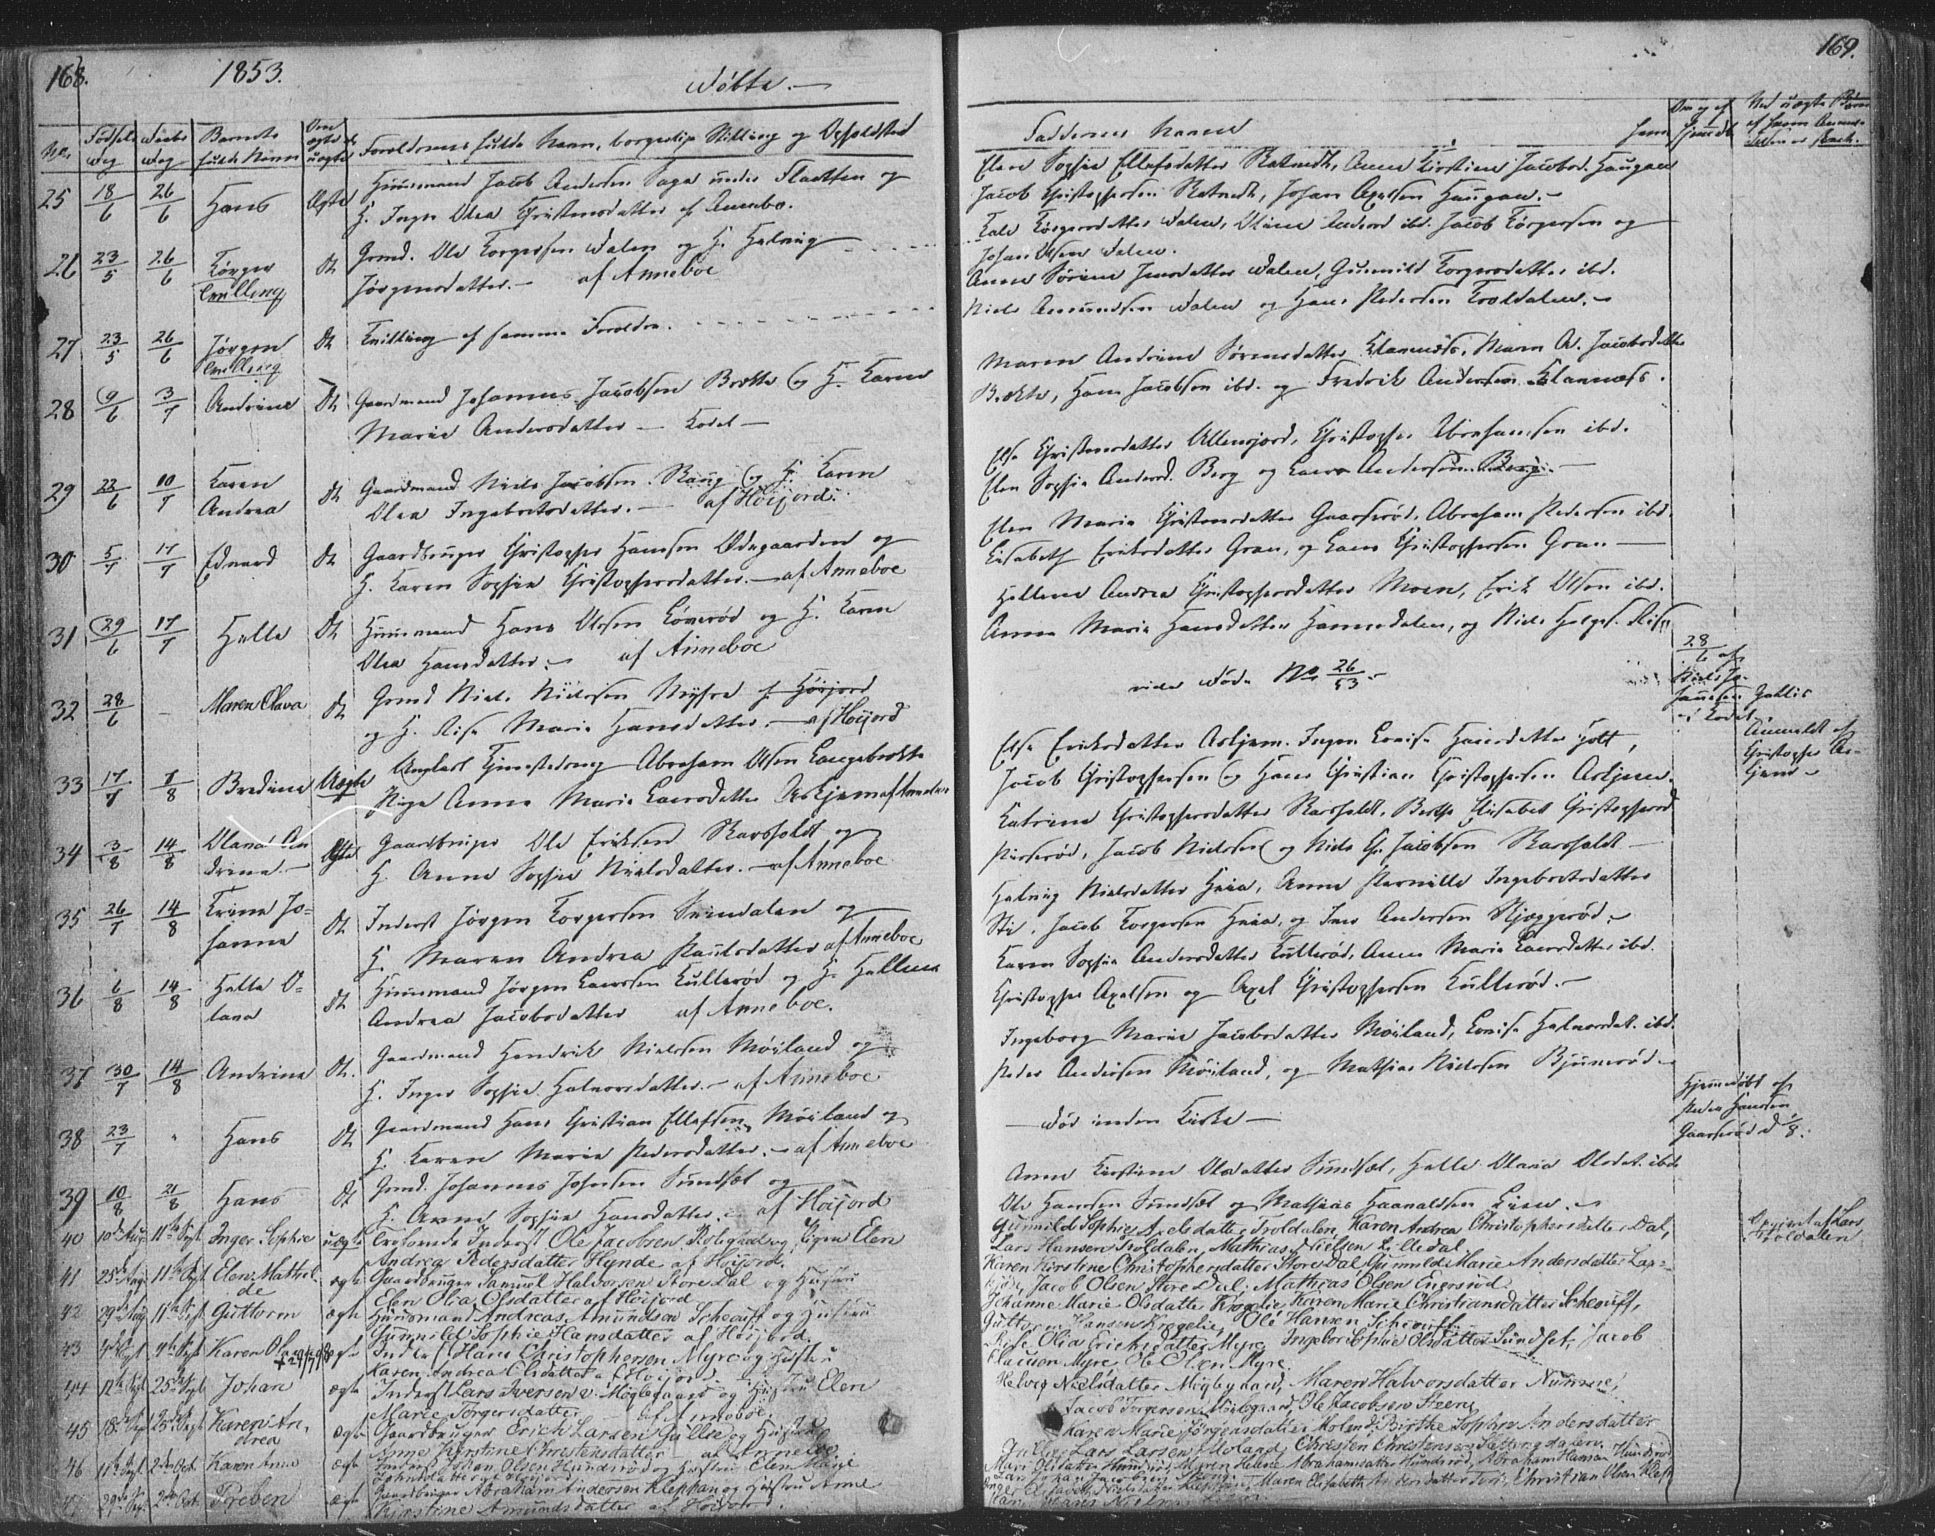 168.
1853.
Døbte.
No. Fødsels Dag Daabs Dag Barnets fulde Navn Om ægte el. uægte Forældrenes fulde Navn, borgerlige Stilling og Opholdsted
25 18/6 26/6 Hans Ægte Huusmand Jacob Andersen Saga under Fladtten og
H. Inger Olea Christensdatter af Annebo.
26 23/5 26/6 Torger Tvilling dt Grmd. Ole Torgersen Dalen og H. Helvig
Jørgensdatter. — af Anneboe
27 23/5 26/6 Jørgen Tvilling dt Tvilling af samme Forældre.
28 9/6 3/7 Andrine dt Gaardmand Johannes Jacobsen Brekke og H. Karen
Marie Andersdatter — Kodal —
29 22/6 10/7 Karen Andrea dt Gaardmand Niels Jacobsen Skaug og H. Karen
Olea Ingebretsdatter. — af Høijord.
30 5/7 17/7 Edvard dt Gaardbruger Christopher Hansen Ødegaarden og
H. Karen Sophie Christophersdatter. — af Anneboe
31 29/6 17/7 Helle dt Huusmand Hans Olsen Løverød og H. Karen
Olea Hansdatter. — af Anneboe
32 28/6 — Maren Olava dt Grmd Niels Nielsen Myhre af Høijord
og H. Lise Marie Hansdatter. — af Høijord
33 17/7 7/8 Bredine Uægte Ungkarl Tjenestedreng Abraham Olsen Langebrekke
Pige Anne Marie Larsdatter Askjem af Anneboe
34 3/8 14/8 Olava Andrine. Ægte Gaardbruger Ole Eriksen Skarsholt og
H. Anne Sophie Nielsdatter. — af Anneboe
35 26/7 14/8 Trine Johanne dt Inderst Jørgen Torgersen Svindalen og
H. Maren Andrea Paulsdatter af Anneboe
36 6/8 14/8 Helle Olava dt Huusmand Jørgen Larssen Kullerød og H. Helline
Andrea Jacobsdatter af Anneboe.
37 30/7 14/8 Andrine dt. Gaardmand Hendrik Nielsen Møiland og
H. Inger Sophie Halvorsdatter. — af Anneboe
38 23/7 Hans dt Gaardmand Hans Christian Ellefsen Møiland og
H. Karen Marie Pedersdatter. — af Anneboe
39 10/8 21/8 Hans dt Grmd. Johannes Johnsen Sundset og
H. Anne Sophie Hansdatter. — af Høijord
40 10de Aug 11te Sept Inger Sophie uægte Inderst Ole Jacobsen og Pigen Elen
Andrea Pedersdatter Hynde af Høijord.
41 25de Aug 11te Sept Elen Mathilde ægte Gaardbruger Samuel Halvorsen Store Dal og Hustru
Elen Olia Olsdatter af Høijord
42 29de Aug 11te Sept Guttorm ægte Huusmand Andreas Amundsen Scheauff og Hustru
Gunnild Sophie Hansdatter af Høijord.
43 Karen Olava ægte Inderst Hans Christophersen Myre og Hustru
Karen Andrea Olsdatter af Høijord
44 12te Sept 25de Sept Johan ægte Inderst Lars Iversen Møglegaard og Hustru Elen
Marie Torgersdatter af Anneboe.
45 18de Sept 25de Sept Karen Andrea ægte Gaardbruger Erich Larsen Galløe og Hustru
Anne Kirstine Christensdatter af Anneboe
46 11te Sept 2den Oct. Karen Anne ægte Inderst Johan Olsen Hundsrød og Hustru Elen Marie
Johnsdatter af Høijord
47 29de 2den Oct. Preben ægte Gaardbruger Abraham Andersen Klephan og Hustru Anne
Kirstine Amundsdatter af Høijord.
169.
Faddernes Navne
Ved uægte Børn
Elen Sophie Ellefsdatter Skatvedt, Anne Kirstine Jacobsd. Haugan
Jacob Christophersen Skatvedt, Johan Axelsen Haugan. —
Kale Torgersdatter Dalen, Oline Andersd ibd. Jacob Torgersen og
Johan Olsen Dalen.
Anne Sørine Jensdatter Dalen, Gunnild Torgersdatter ibd.
Niels Amundsen Dalen og Hans Pedersen Troldalen. —
Maren Andrine Sørensdatter Klavnæss, Maren A. Jacobsdatter
Brekke, Hans Jacobsen ibd. og Fredrik Andersen Klavnæss.
Else Christensdatter Allumjord, Christopher Abrahamsen ibd.
Elen Sophie Andersd. Berg og Lars Andersen Berg. —
Elen Marie Christensdatter Gaaserød, Abraham Pedersen ibd.
Lisabeth Eriksdatter Gran, og Lars Christophersen Gran —
Helline Andrea Christophersdatter Moen, Erik Olsen ibd.
Anne Marie Hansdatter Hannedalen, og Niels Holgers. Rise
vide Døde No 26/53 —
28/6 af Niels Johannesen i Kodal
Else Eriksdatter Askjem. Inger Lovise Hansdatter Holt,
Jacob Christophersen og Hans Christian Christophersen Askjem.
Anmeldt af Christopher Askjem —
Katrine Christophersdatter Skarsholt, Berthe Elisabet Christophersd
Pisserød, Jacob Nielsen og Niels Chr. Jacobsen Skarsholt —
Helvig Nielsdatter Heia, Anne Pernille Ingebretsdatter
Sti, Jacob Torgersen Heia, og Iver Andersen Skjeggerød —
Karen Sophie Andersdatter Kullerød, Anne Marie Larsdatter ibd.
Christopher Axelsen og Axel Christophersen Kullerød. —
Ingeborg Marie Jacobsdatter Møiland, Lovise Halvorsdat. ibd.
Peder Andersen Møiland, og Mathias Nielsen Bjunerød —
— død inden Kirke —
Hjemmedøbt af Peder Hanssen Gaaserød d 1/8.
Anne Kirstine Olsdatter Sundset, Helle Olava Olsdat. ibd
Ole Hanssen Sundset og Mathias Haavaldsen Lien. —
Gunnild Sophie Axelsdatter Troldalen, Karen Andrea Christophersdatter Dal,
Lars Hansen Troldalen, Mathias Nielsen Lilledal.
Opgivet af Lars Troldalen
Karen Kirstine Christophersdatter Store Dal, Gunnild Marie Andersdatter
Jacob Olsen Store Dal, Mathias Olsen Engerød
Johanne Marie Olsdatter Krogelie, Karen Marie Christiansdatter Scheauff,
Guttorm Hansen Krogelie, Ole Hansen Scheauff.
Lise Olia Erichsdatter Myre, Ingeborg Sophie Olsdatter Sundset, Jacob
Myre, Ole Olsen Myre
Helvig Nielsdatter Møglegaard, Maren Halvorsdatter Nomme,
Jacob Torgersen Møglegaard, Ole Jacobsen Steen.
Karen Marie Jørgensdatter Moland, Birthe Sophie Andersdatter
Galløe, Lars Larsen Moland, Christen Christensen
Olsdatter Hundsrød, Maren Helene Abrahamsdatter Hundsrød, Abraham Hansen Hundsrød
Maren Elisabeth Andersdatter Christian Olsen Klep